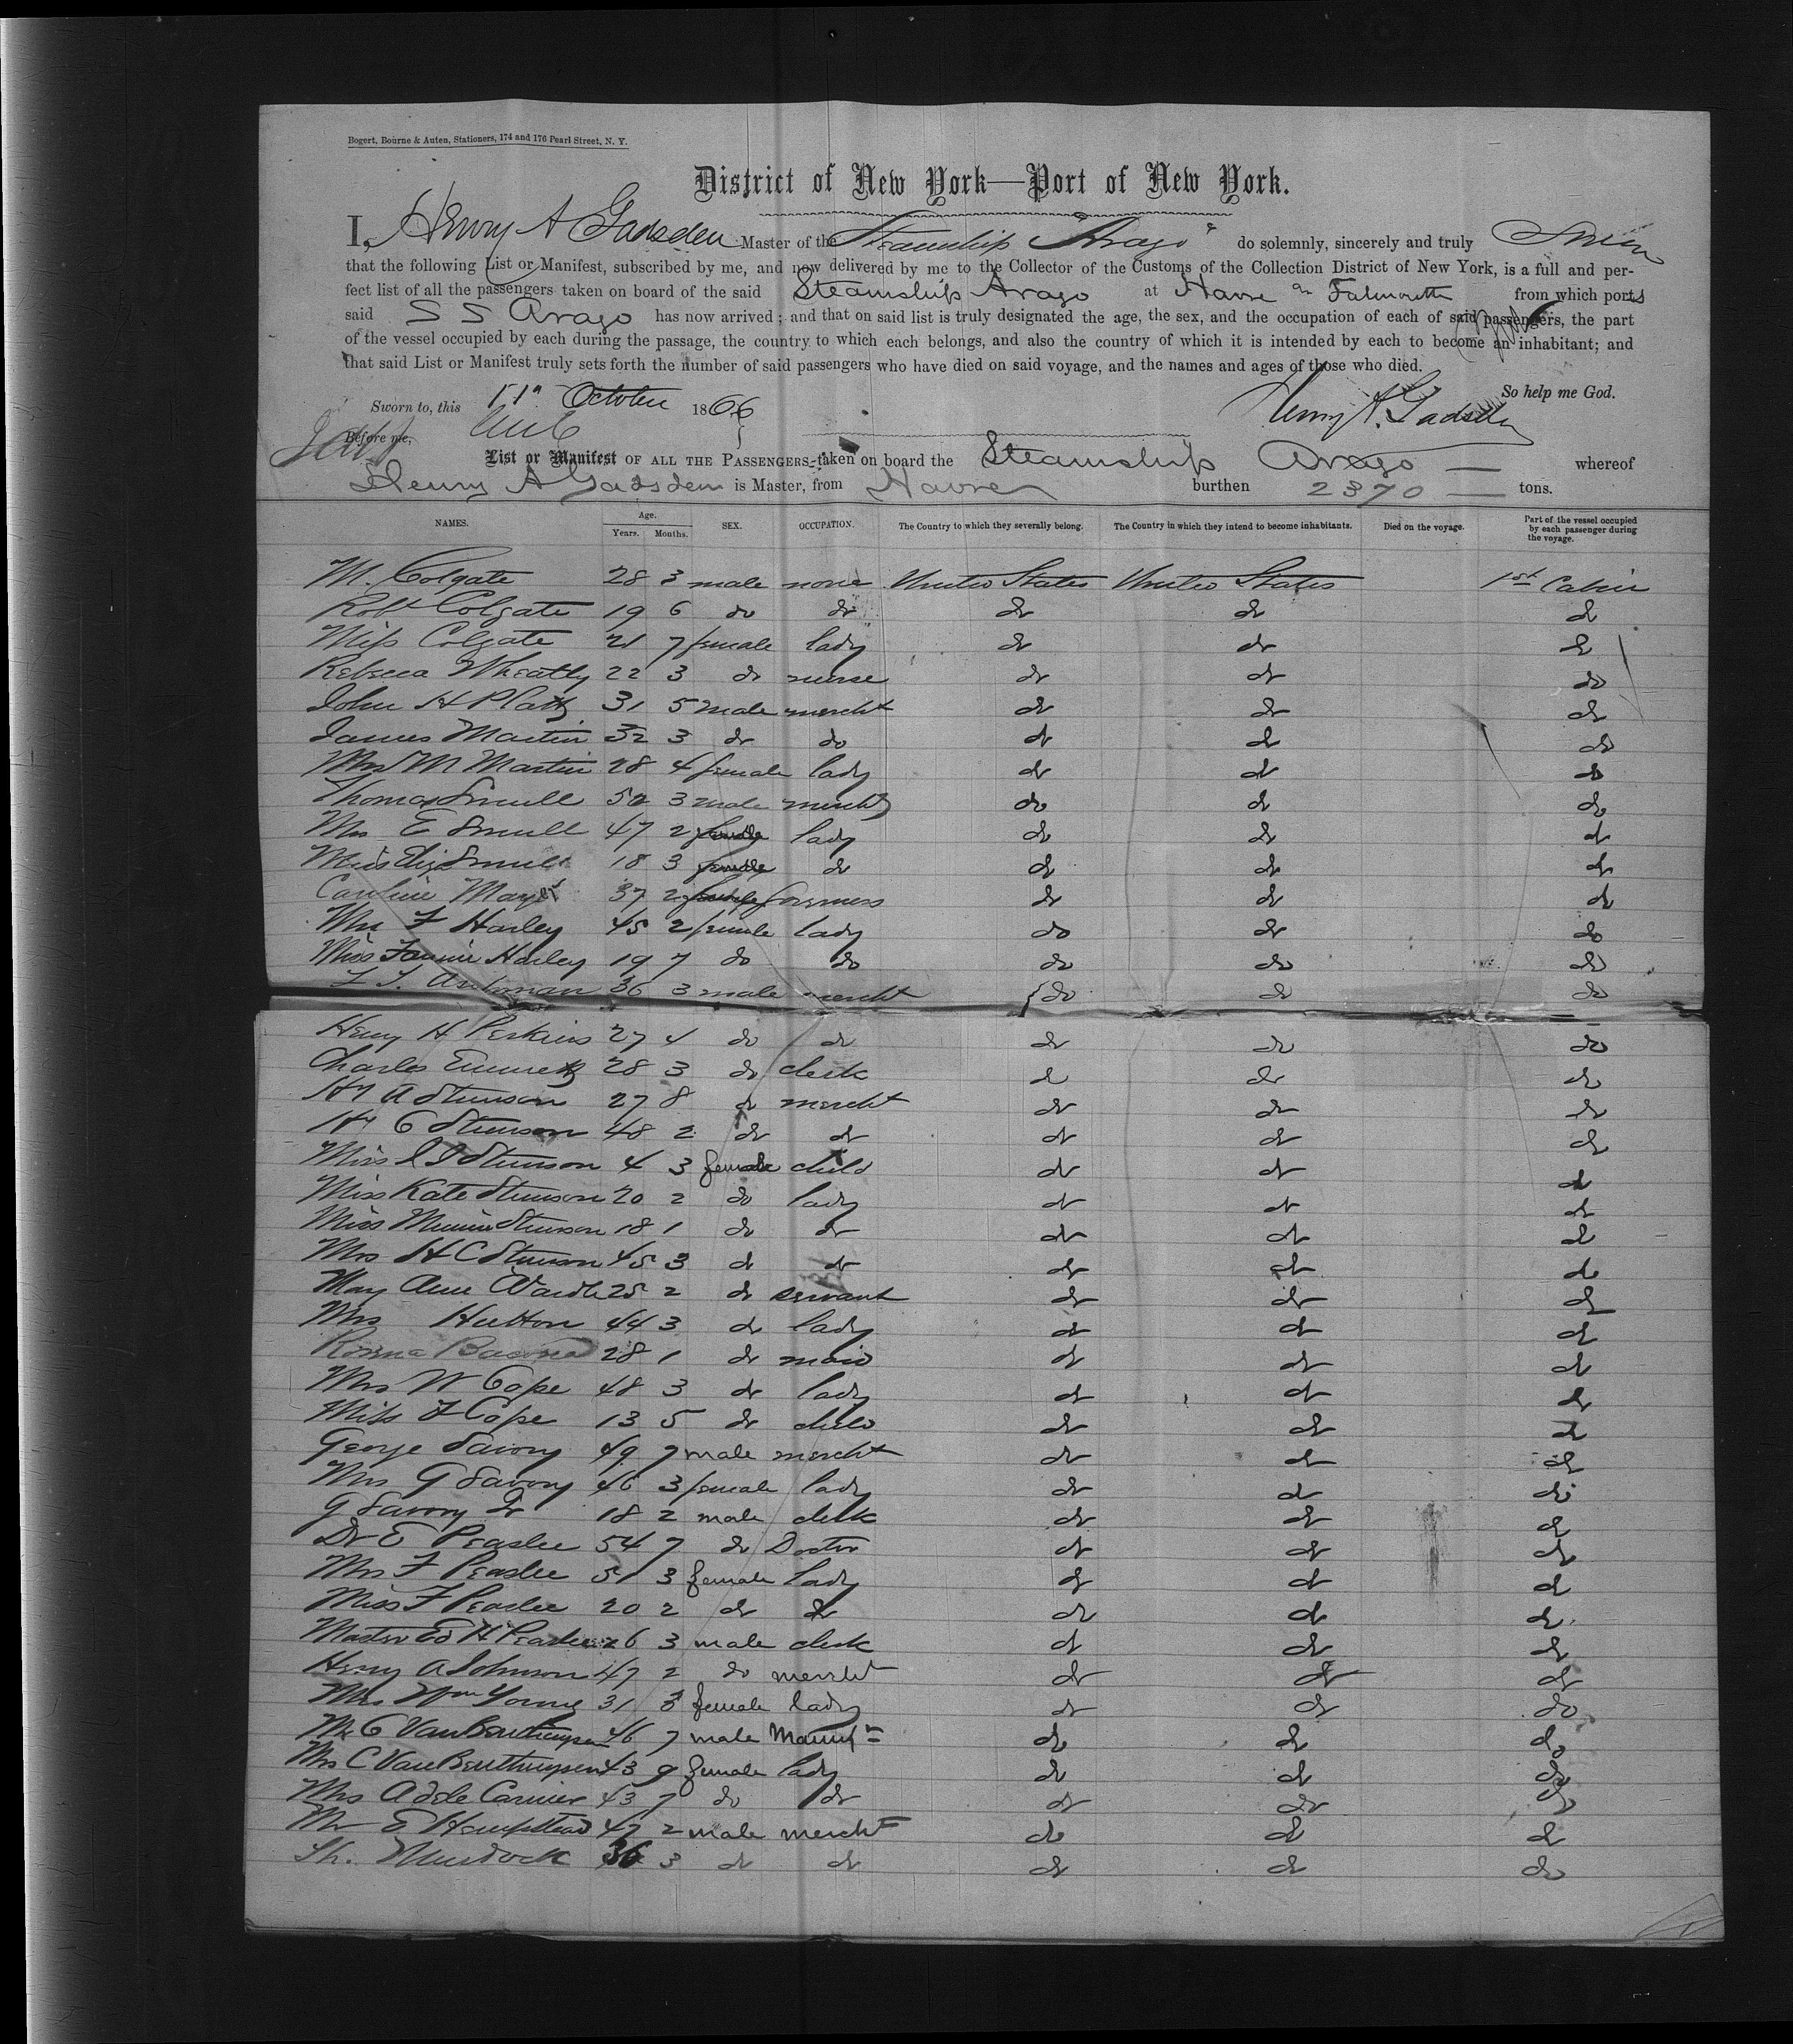 Bogert, Bourne & Auten, Stationers, 174 and 176 Pearl Street, N. Y.
District of New York—Port of New York.
I, Henry A Gadsden Master of the Steamship Arago do solemnly, sincerely and truly Swear
that the following List or Manifest, subscribed by me, and now delivered by me to the Collector of the Customs of the Collection District of New York, is a full and per-
fect list of all the passengers taken on board of the said Steamship Arago at Havre Falmouth from which ports
said S S Arago has now arrived; and that on said list is truly designated the age, the sex, and the occupation of each of said passengers, the part
of the vessel occupied by each during the passage, the country to which each belongs, and also the country of which it is intended by each to become an inhabitant; and
that said List or Manifest truly sets forth the number of said passengers who have died on said voyage, and the names and ages of those who died.
So help me God.
Sworn to, this October 1866 Henry A. Gadsden
Before me,
List or Manifest OF ALL THE PASSENGERS taken on board the Steamship Arago whereof
Henry A Gadsden is Master, from Havre burthen 2370 tons.
NAMES. Age. Years. Months. SEX. OCCUPATION. The Country to which they severally belong. The Country in which they intend to become inhabitants. Died on the voyage. Part of the vessel occupied by each passenger during the voyage.
M. Colgate 28 3 male none United States United States 1st Cabin
Robt Colgate 19 6 do do do do do
Miss Colgate 21 7 female lady do do do
Rebecca Wheatly 22 3 do nurse do do do
John H Platt 31 5 male mercht do do do
James Martin 32 3 do do do do do
Mrs M Martin 28 4 female lady do do do
Thomas Smull 52 3 male mercht do do do
Mrs E Smull 47 2 female lady do do do
Miss Eliz Smull 18 3 female do do do do
Caroline 37 2 female Governess do do do
Mrs F Harley 45 2 female lady do do do
Miss Fannie Harley 19 7 do do do do do
36 3 male mercht do do do
Henry H Perkins 27 4 do do do do do
Charles Emmett 28 3 do clerk do do do
A Stimson 27 8 do mercht do do do
C Stimson 48 2 do do do do do
Miss Stimson 4 3 female child do do do
Miss Kate Stimson 20 2 do lady do do do
Miss Minnie Stimson 18 1 do do do do do
Mrs H C Stimson 45 3 do do do do do
Mary Ann 25 2 do servant do do do
Mrs Hutton 44 3 do lady do do do
28 1 do maid do do do
Mrs W Cope 48 3 do lady do do do
Miss F Cope 13 5 do child do do do
George Savory 49 7 male mercht do do do
Mrs G Savory 46 3 female lady do do do
G Savory Jr 18 2 male clerk do do do
Dr E Peaslee 54 7 do Doctor do do do
Mrs F Peaslee 51 3 female lady do do do
Miss F Peaslee 20 2 do do do do do
Master Ed H Peaslee 26 3 male clerk do do do
Henry A Johnson 47 2 do mercht do do do
Mrs Wm Young 31 3 female lady do do do
Mr C Van Benthuysen 46 7 male do do do
Mrs C Van Benthuysen 43 9 female lady do do do
Mrs Adele 43 7 do do do do do
Mr E Hempstead 47 2 male mercht do do do
Murdock 36 3 do do do do do